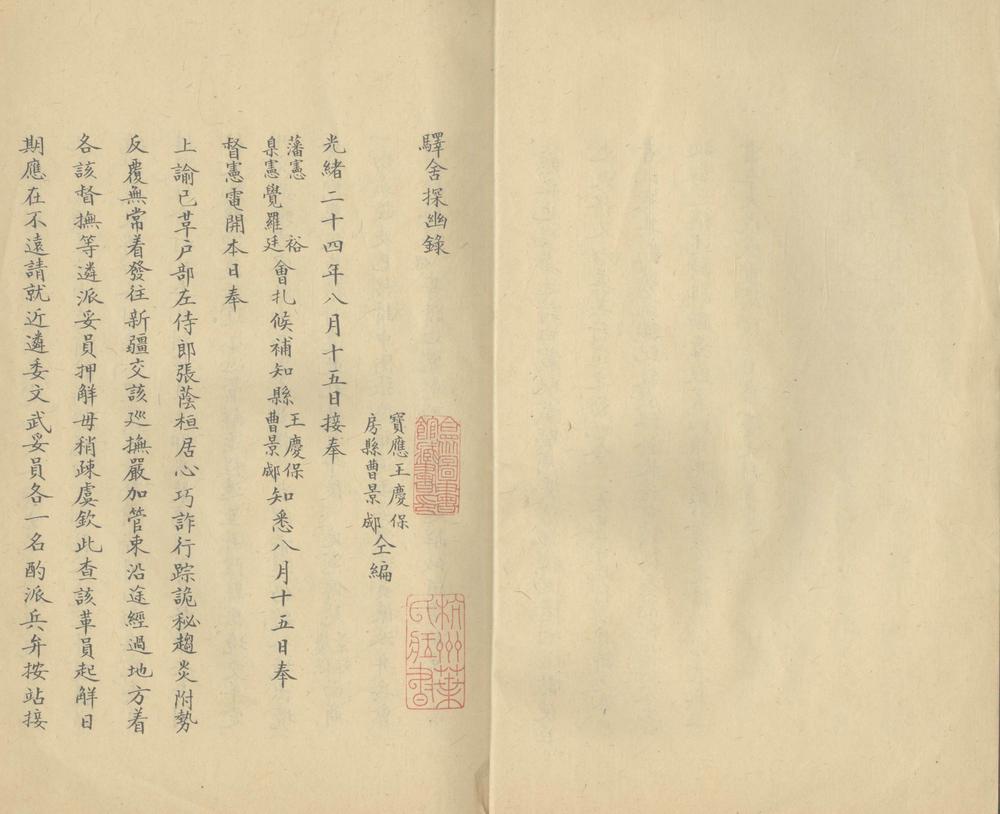 驛舍探幽錄
寶應王慶保
房縣曹景郕仝編
光緒二十四年八月十五日接奉
藩憲 裕
臬憲覺羅廷會札候補知縣王慶保
曹景郕知悉八月十五日奉
督憲電開本日奉
上諭已革戶部左侍郎張蔭桓居心巧詐行踪詭秘趨炎附勢
反覆無常着發往新疆交該廵撫嚴加管束沿途經過地方着
各該督撫等遴派妥員押解毋稍疎虞欽此查該革員起解日
期應在不遠請就近遴委文武妥員各一名酌派兵弁按站接
合眾圖書館藏書印
杭州葉氏藏書